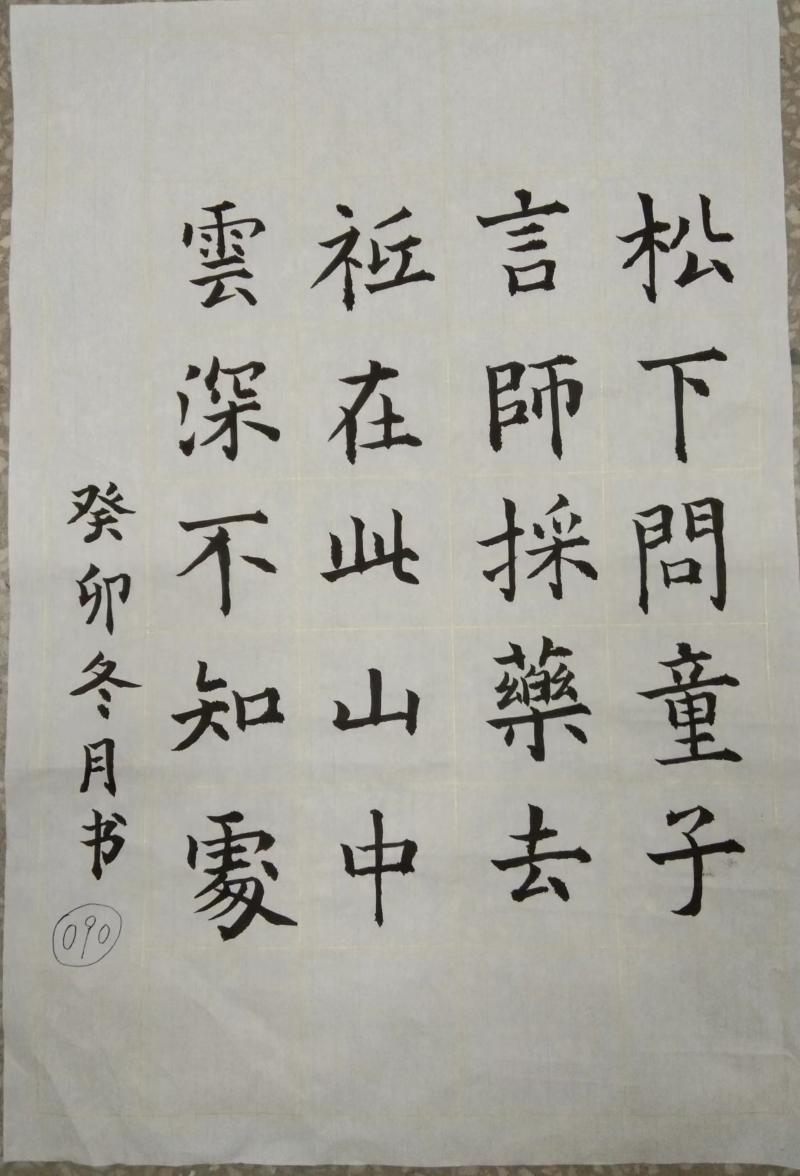 松下問童子
言師採藥去
祗在此山中
雲深不知處
癸卯冬月书
090